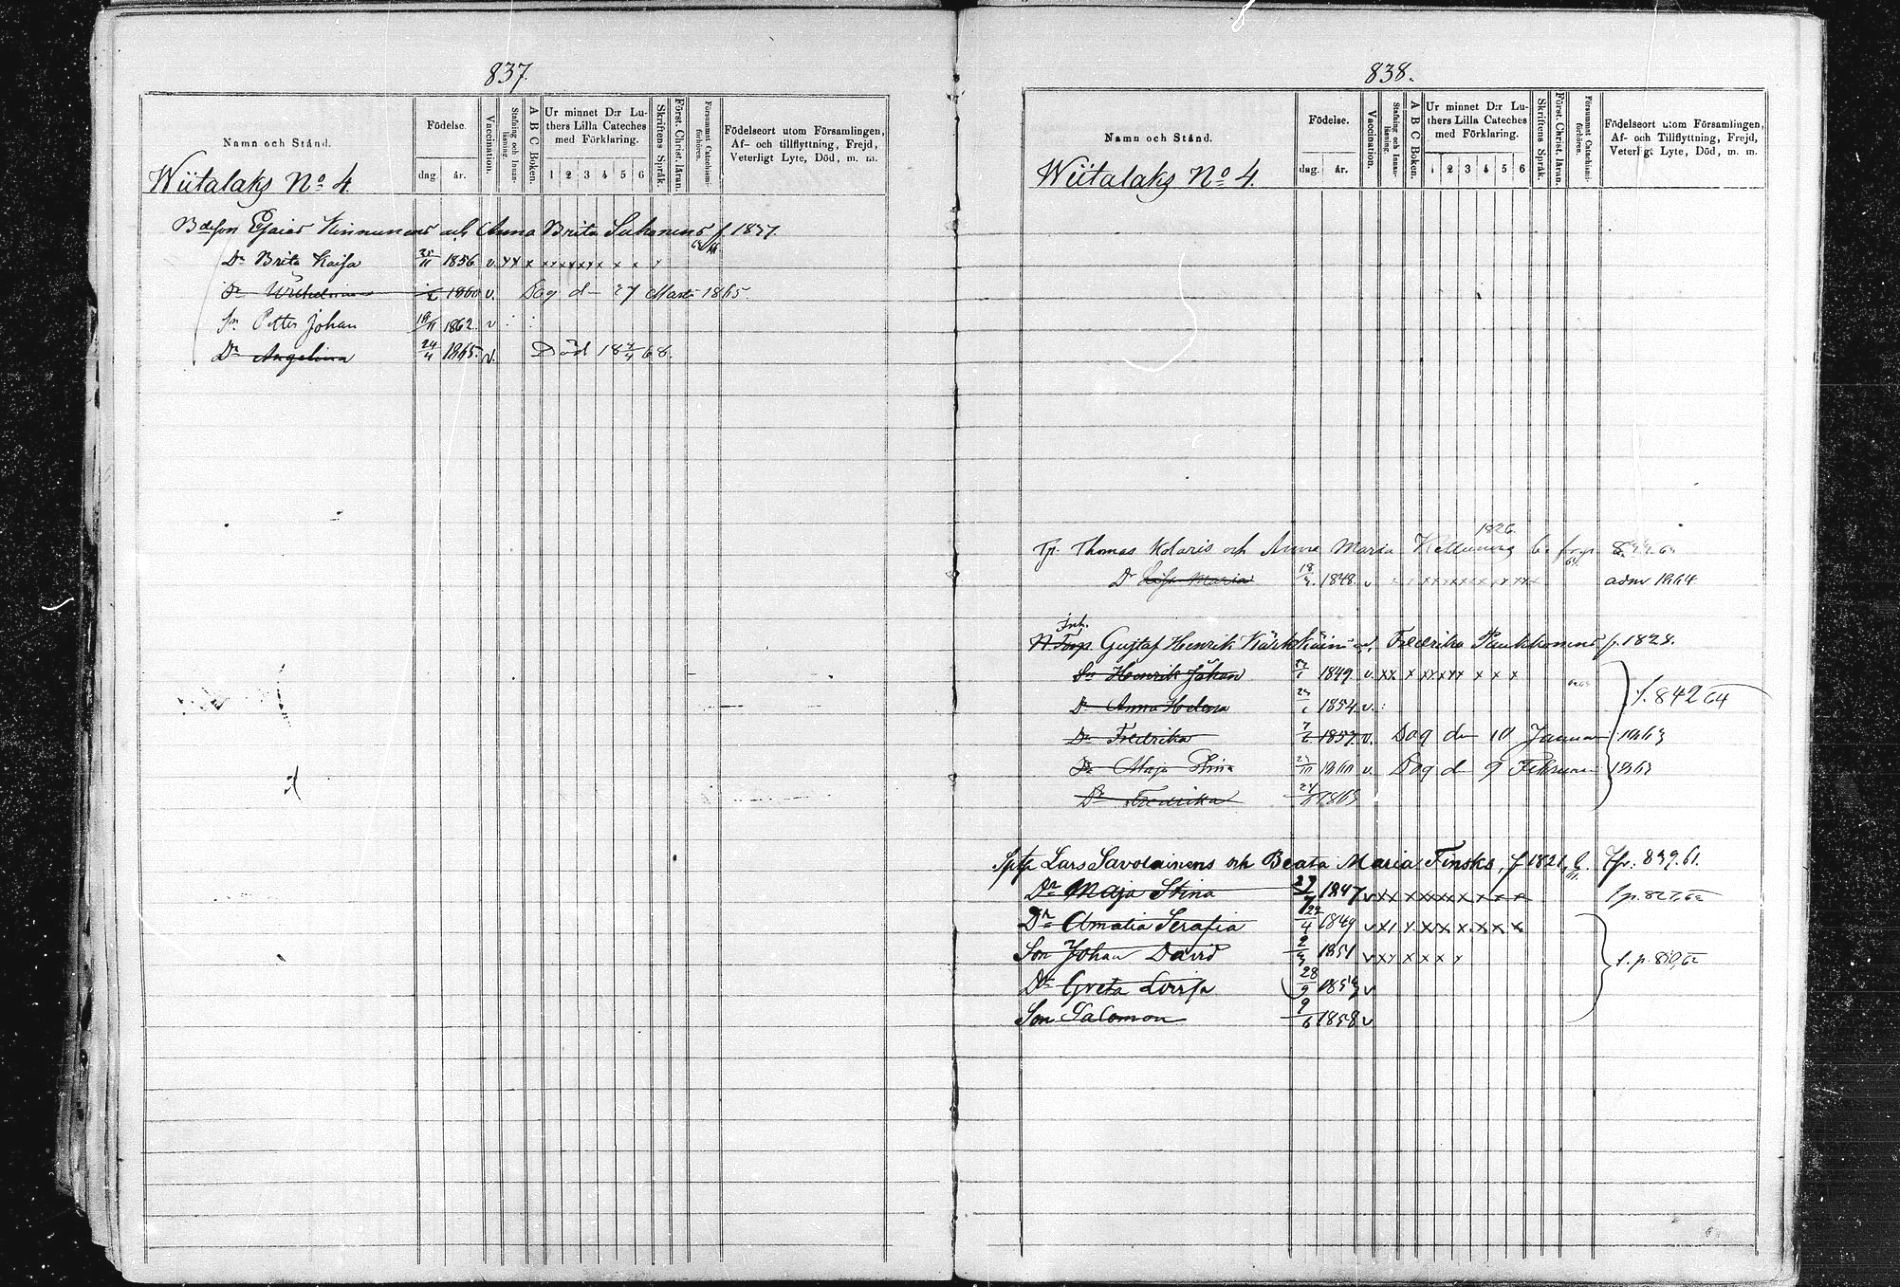 837.
Namn och Stånd.
Födelse.
dag. år.
Vaccination.
Stafning och Innanläsning.
A B C Boken.
Ur minnet D:r Luthers Lilla Cateches med Förklaring.
1 2 3 4 5 6
Skriftens Språk.
Först. Christ. läran.
Försummat Catechismiförhören.
Födelseort utom Församlingen,
Af- och tillflyttning, Frejd,
Veterligt Lyte, Död, m. m.
Wiitalaks No 4.
Esaias Kinnunens och Anna Brita f. 1837.
Dr Brita Kaisa 1856 v xx x xxxxxx x x x
Dr Wilhelmina 1860 v. Dog d 27 Mars 1865.
Sn Petter Johan 19/11 1862. v
Dr Angelina 24/4 1865. v. Död 18 68.
838.
Namn och Stånd.
Födelse.
dag. år.
Vaccination.
Stafning och Innanläsning.
A B C Boken.
Ur minnet D:r Luthers Lilla Cateches med Förklaring.
1 2 3 4 5 6
Skriftens Språk.
Först. Christ. läran.
Försummat Catechismiförhören.
Födelseort utom Församlingen,
Af- och Tillflyttning, Frejd,
Veterligt Lyte, Död, m. m.
Wiitalaks No 4.
1826.
Thomas Kolaris och Anna Maria
Dr Maria 1848 v adm 1864
Inh.
Gustaf Henrik Fredrika f. 1828.
Sn Henrik Johan 1849 v. xx x xxxx x x x
Dr Anna Helena 1854 v. f. 842 64
Dr Fredrika 1857 v. Dog den 10 Januari 1863
Dr Maja Stina 1860 v. Dog d 9 Februari 1863
Dr Fredrika 1863
Lars Savolainens och Beata Maria Finska, f 1821. Tfr. 839. 61.
Dr Maja Stina 27/7 1847 v xx x xxxx x x x
Dr Amalia Serafia 1849 v xx x xx x x x x
Son Johan David 1851 v xx x x x x
Dr Greta Lovisa 28/9 v
Son Salomon 9/6 1858 v